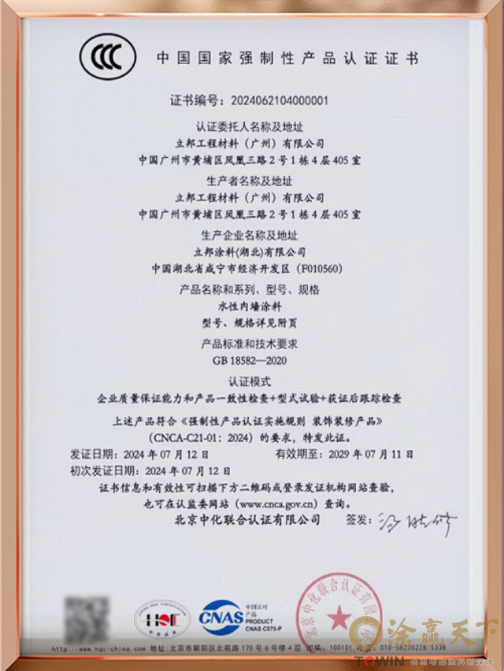 CCC
中国国家强制性产品认证证书
证书编号：2024062104000001
认证委托人名称及地址
立邦工程材料（广州）有限公司
中国广州市黄埔区凤凰三路2号1栋4层405室
生产者名称及地址
立邦工程材料（广州）有限公司
中国广州市黄埔区凤凰三路2号1栋4层405室
生产企业名称及地址
立邦涂料(湖北)有限公司
中国湖北省咸宁市经济开发区（F010560）
产品名称和系列、型号、规格
水性内墙涂料
型号、规格详见附页
产品标准和技术要求
GB 18582—2020
认证模式
企业质量保证能力和产品一致性检查+型式试验+获证后跟踪检查
上述产品符合《强制性产品认证实施规则 装饰装修产品》
（CNCA-C21-01：2024）的要求，特发此证。
发证日期：2024年07月12日 有效期至：2029年07月11日
初次发证日期：2024年07月12日
证书信息和有效性可扫描下方二维码或登录发证机构网站查验，
也可在认监委网站（www.cnca.gov.cn）查询。
北京中化联合认证有限公司 签发：
HQC
CNAS
中国认可
产品
PRODUCT
CNAS C075-P
北京中化联合认证有限公司
涂赢天下
TOWIN
http://www.hqc-china.com 地址：北京市朝阳区北苑路170号6号楼4层 100101 010-58235226/5338